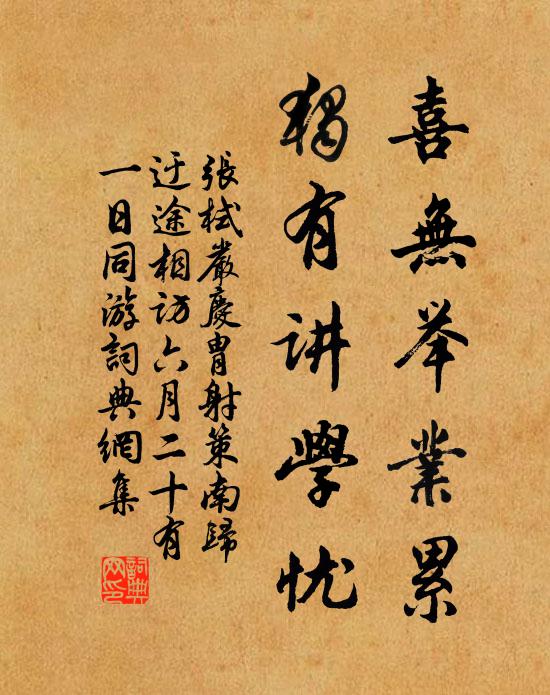 喜無举業累
獨有讲學忧
張栻嚴慶胄射策南歸
迂途相訪六月二十有
一日同游詞典網集
詞典网印